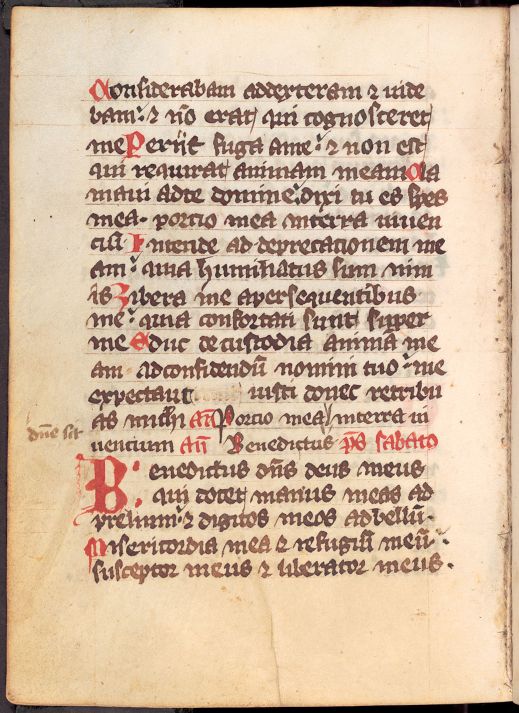 Considerabam addexteram ⁊ uide
bam: ⁊ nō erat qui cognosceret
me Periit fuga ame: ⁊ non est
qui requirat animam meam Cla
maui adte domine: dixi tu es spes
mea. portio mea interra uiuen
cium Intende ad deprecationem me
am: quia humiliatus sum nim
is Libera me apersequentibus
me: quia confortati sunt super
me Educ de custodia animā me
am adconfidendū nomini tuo: me
expectant iusti donec retribu
as michi an̄ Portio mea interra ui
dn̄e sit
uencium an̄ Benedictus ps̄ sabato
Benedictus dn̄s deus meus
qui docet manus meas ad
prelium: ⁊ digitos meos adbellū.
Misericordia mea ⁊ refugiū meū:
susceptor meus ⁊ liberator meus.